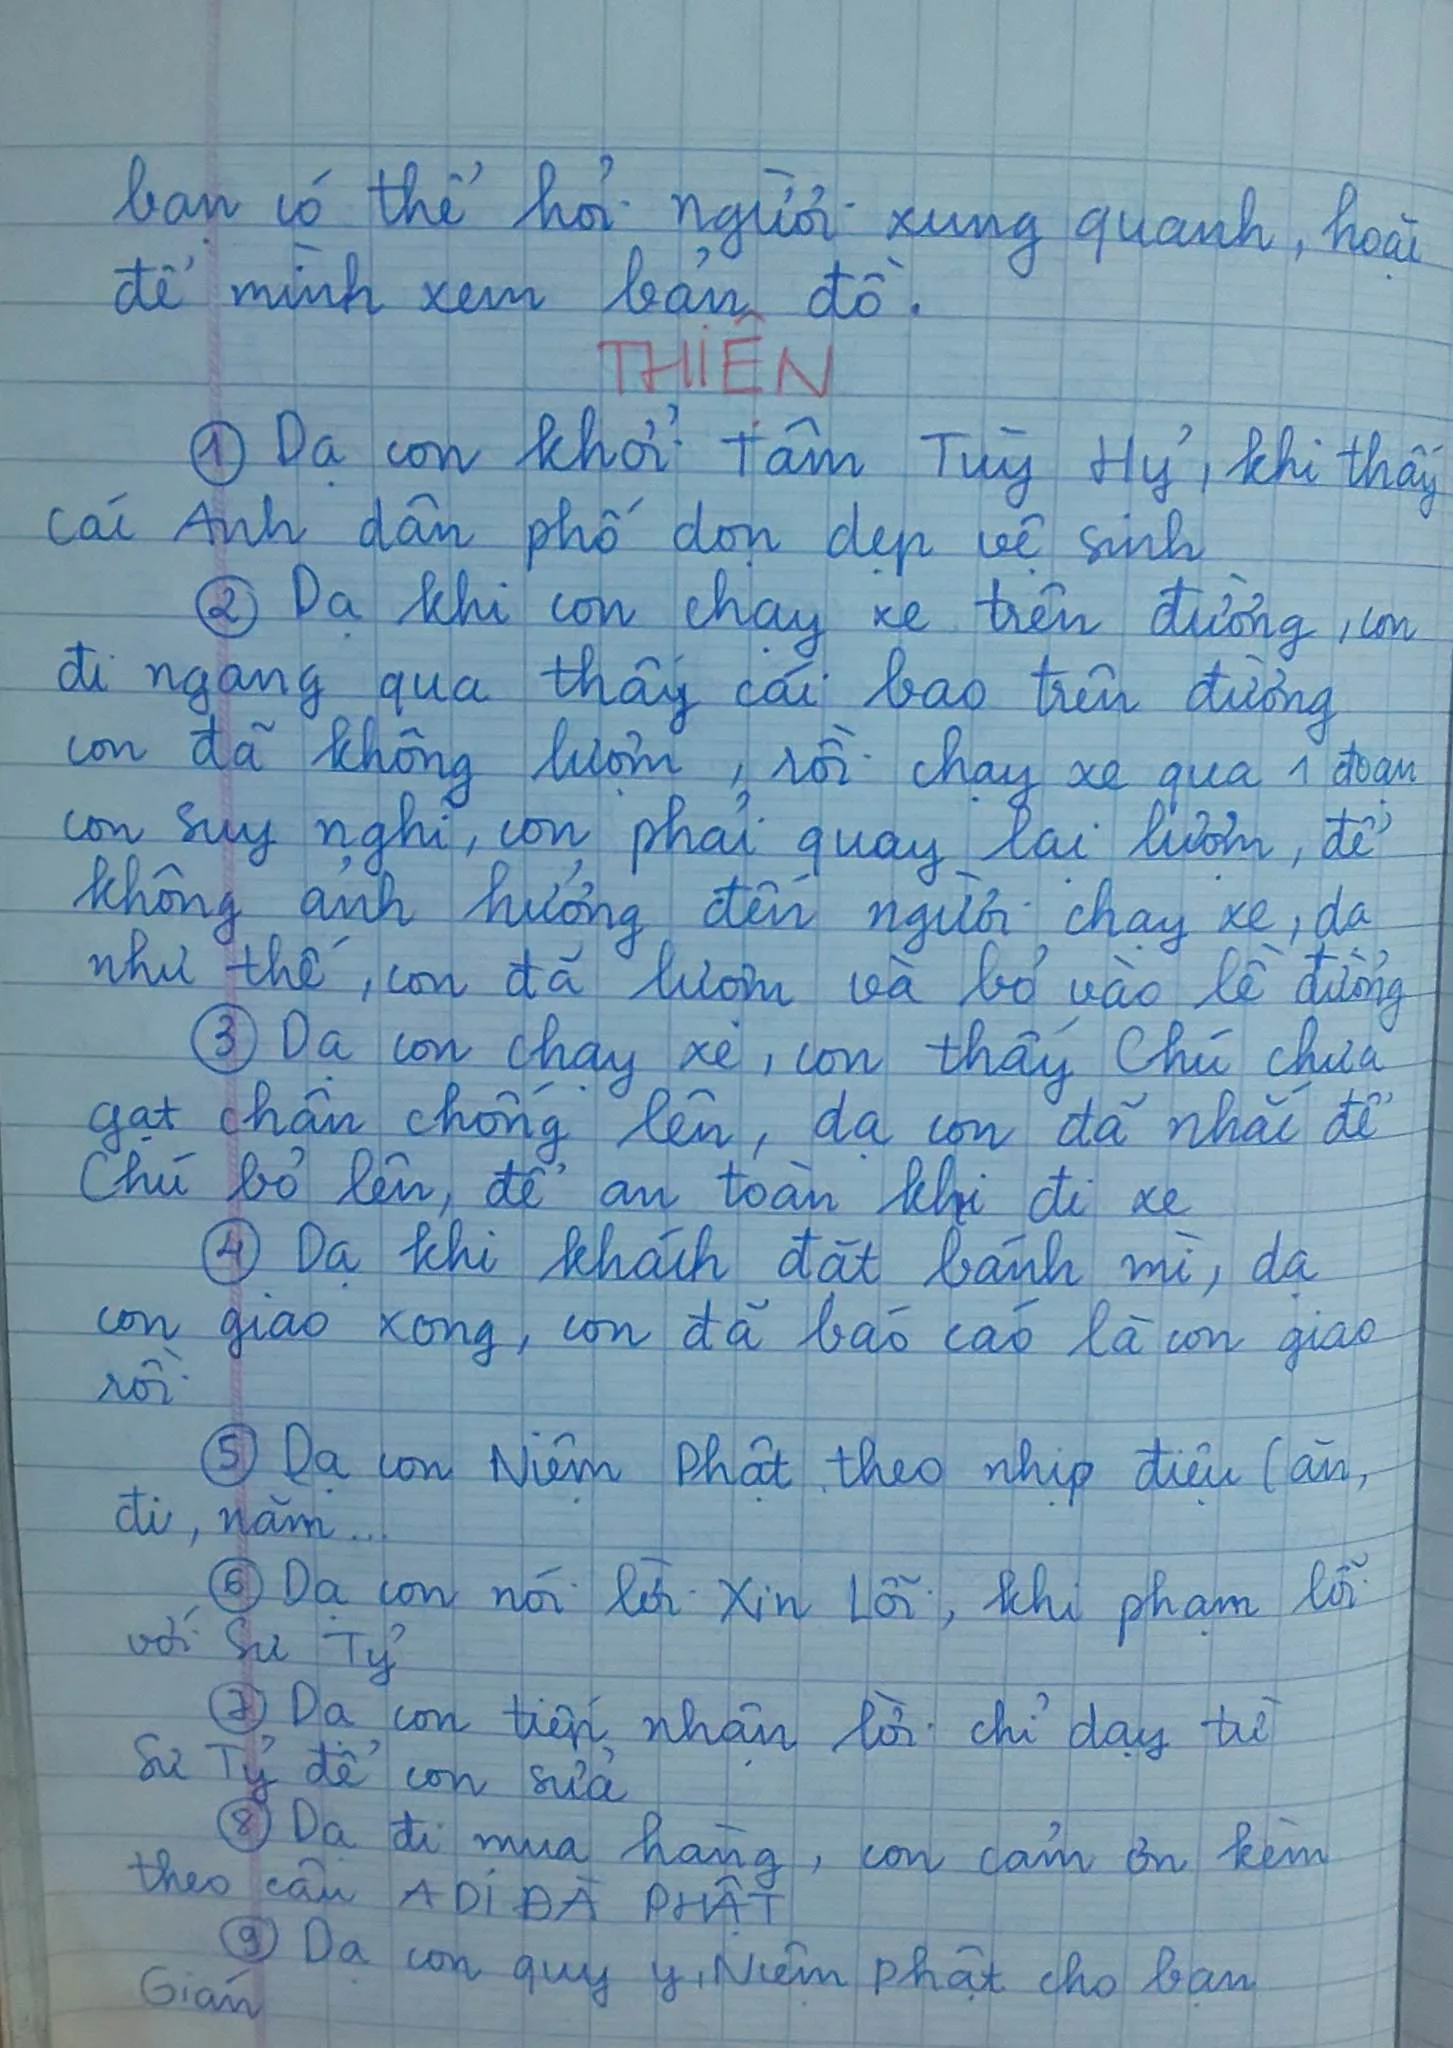 bạn có thể hỏi người xung quanh, hoặc
để mình xem bản đồ.
THIỆN
① Dạ con khởi Tâm Tùy Hỷ, khi thấy
các Anh dân phố dọn dẹp vệ sinh
② Dạ khi con chạy xe trên đường, con
đi ngang qua thấy cái bao trên đường
con đã không lượm, rồi chạy xe qua 1 đoạn
con suy nghĩ, con phải quay lại lượm, để
không ảnh hưởng đến người chạy xe, dạ
như thế, con đã lượm và bỏ vào lề đường
③ Dạ con chạy xe, con thấy Chú chưa
gạt chân chống lên, dạ con đã nhắc để
Chú bỏ lên, để an toàn khi đi xe
④ Dạ khi khách đặt bánh mì, dạ
con giao xong, con đã báo cáo là con giao
rồi
⑤ Dạ con Niệm Phật theo nhịp điệu (ăn,
đi, nằm...
⑥ Dạ con nói lời Xin Lỗi, khi phạm lỗi
với Sư Tỷ
⑦ Dạ con tiếp nhận lời chỉ dạy từ
Sư Tỷ để con sửa
⑧ Dạ đi mua hàng, con cảm ơn kèm
theo câu A DI ĐÀ PHẬT
⑨ Dạ con quy y, Niệm Phật cho bạn
Gián